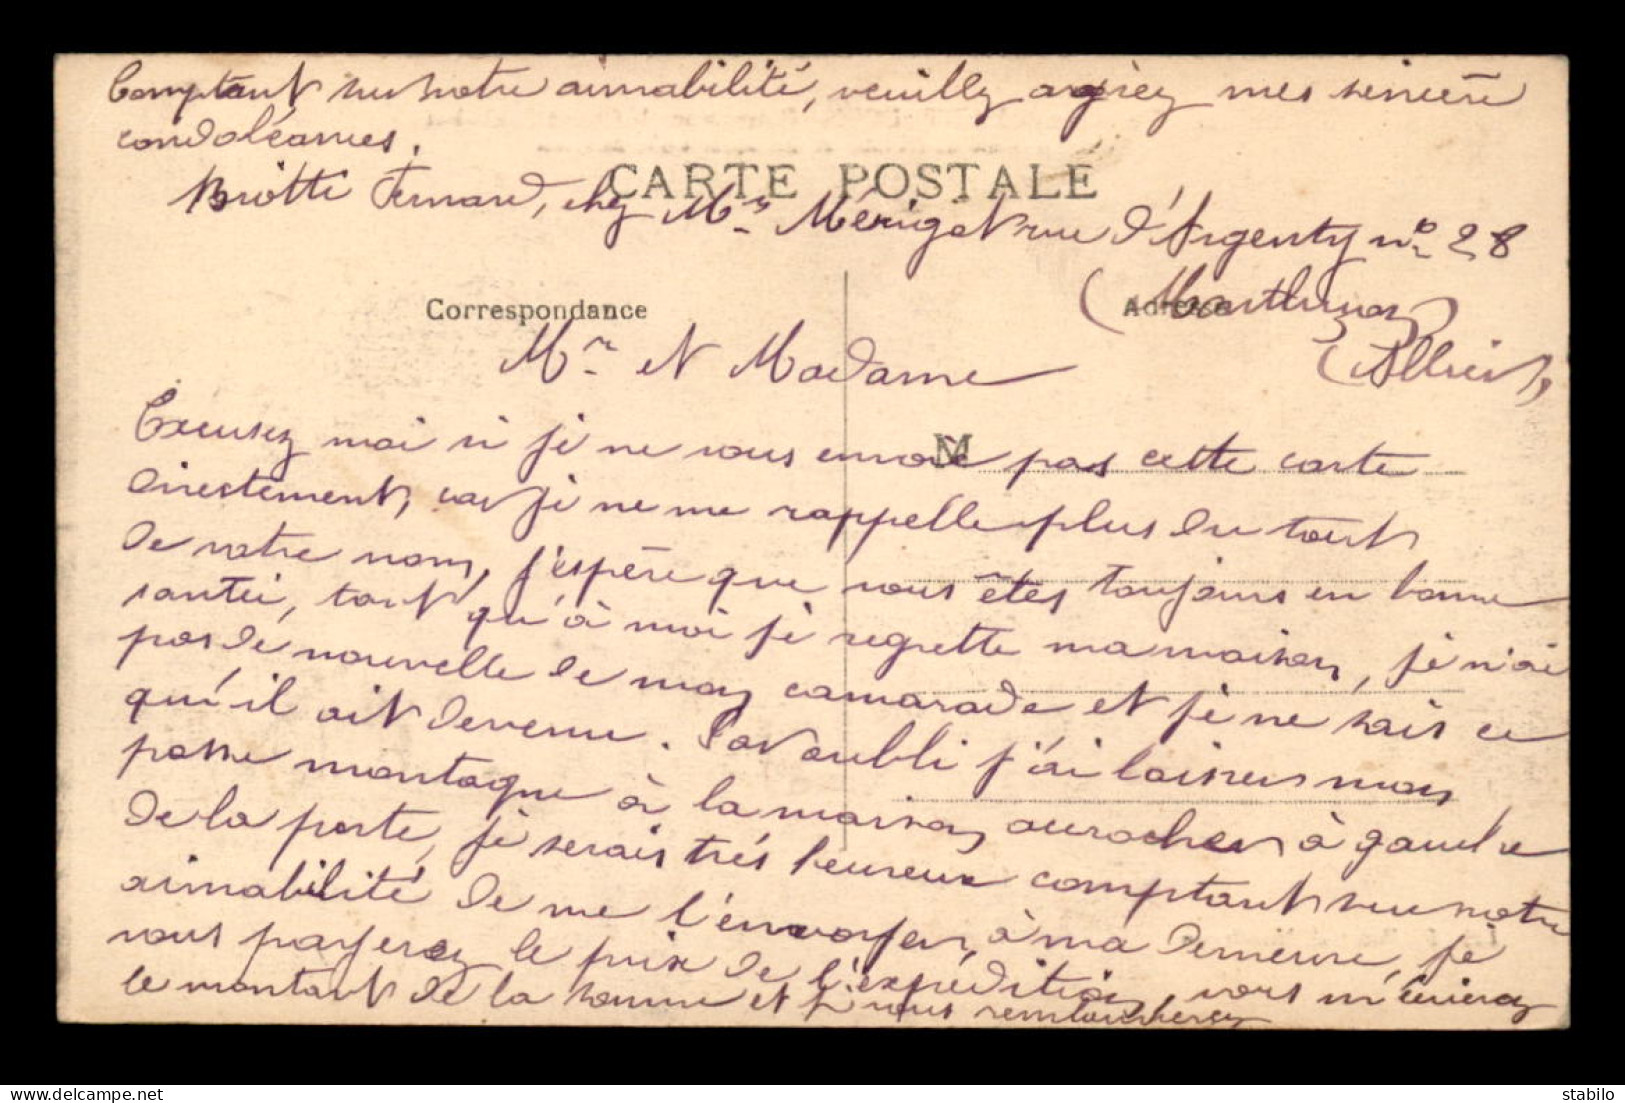 Comptant sur votre aimabilité, veuilly agréez mes sincère
condoléances.
CARTE POSTALE
Briotti Fernand, chez Mr Mérigot rue d'Argenty no 28
(Montluçon)
(Allier)
Correspondance
Adresse
Mr et Madame
M
Excusez moi si je ne vous envoie pas cette carte
directement, car je ne me rappelle plus du tout
de votre nom, j'espère que vous êtes toujours en bonne
santéi, tout qu'à moi je regrette ma maison, je n'ai
pas de nouvelle de mon camarade et je ne sais ce
qu'il ait devenu. Par oubli j'ai laisser mon
passe montagne à la maison accrocher à gauche
de la porte, je serais très heureux comptant sur votre
aimabilité de me l'envoyer, à ma demeure, je
vous payerez le prix de l'expédition, vous m'écrierez
le montant de la somme et je vous rembourserez
stabilo